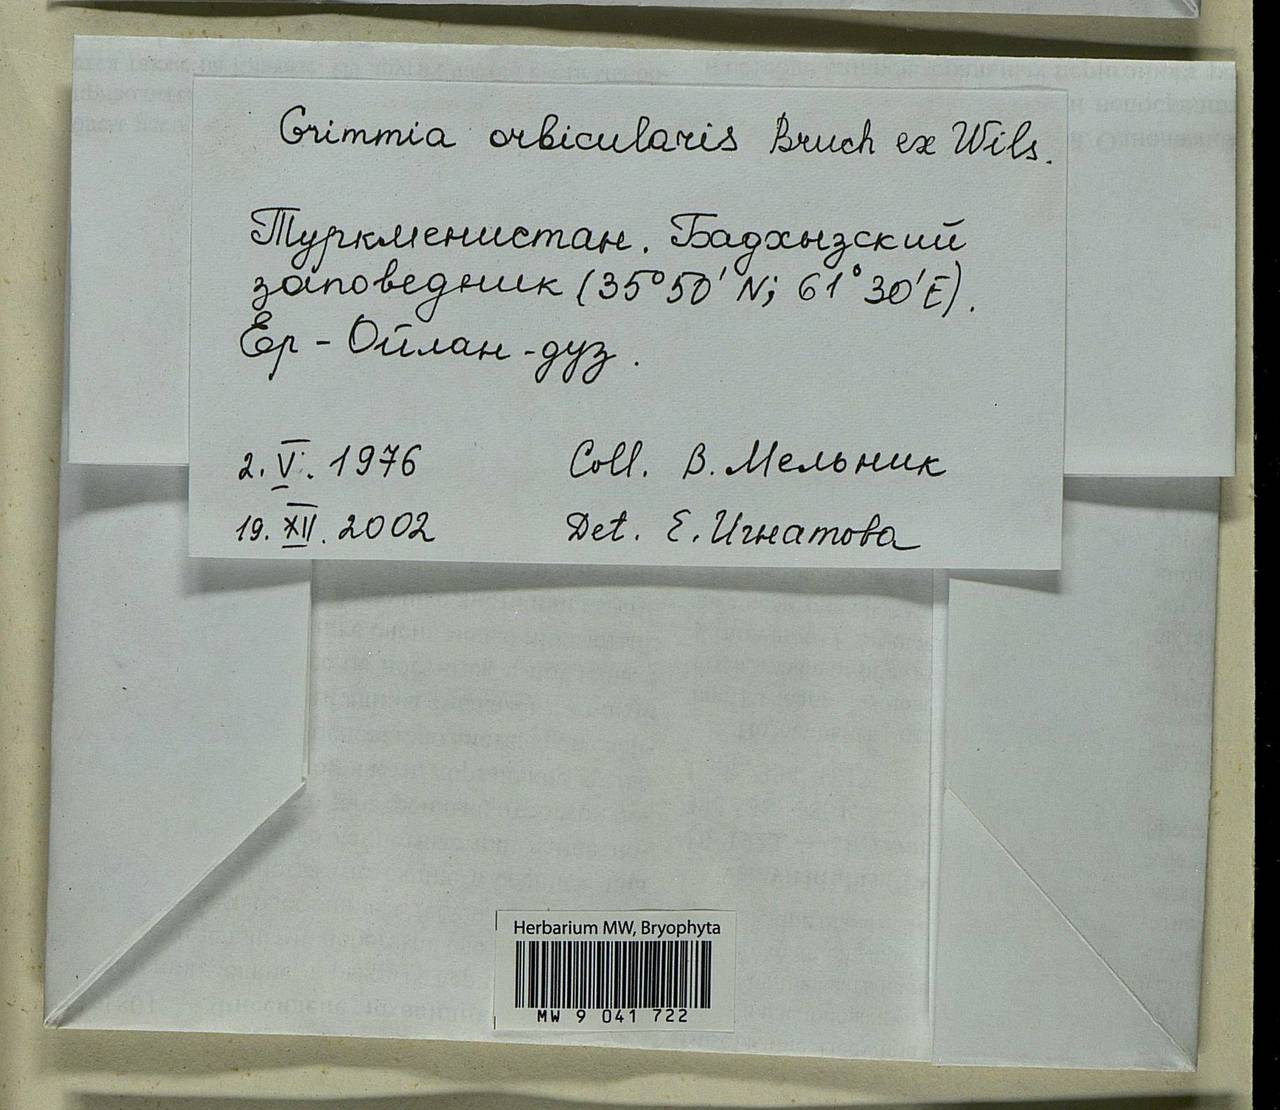 Grimmia orbicularis Bruch ex Wils.
Туркменистан. Бадхызский
заповедник (35°50' N; 61°30'E).
Ер-Ойлан-дуз.
2.V.1976 Coll. В. Мельник
19.XII.2002 Det. Е. Игнатова
Herbarium MW, Bryophyta
MW 9 041 722